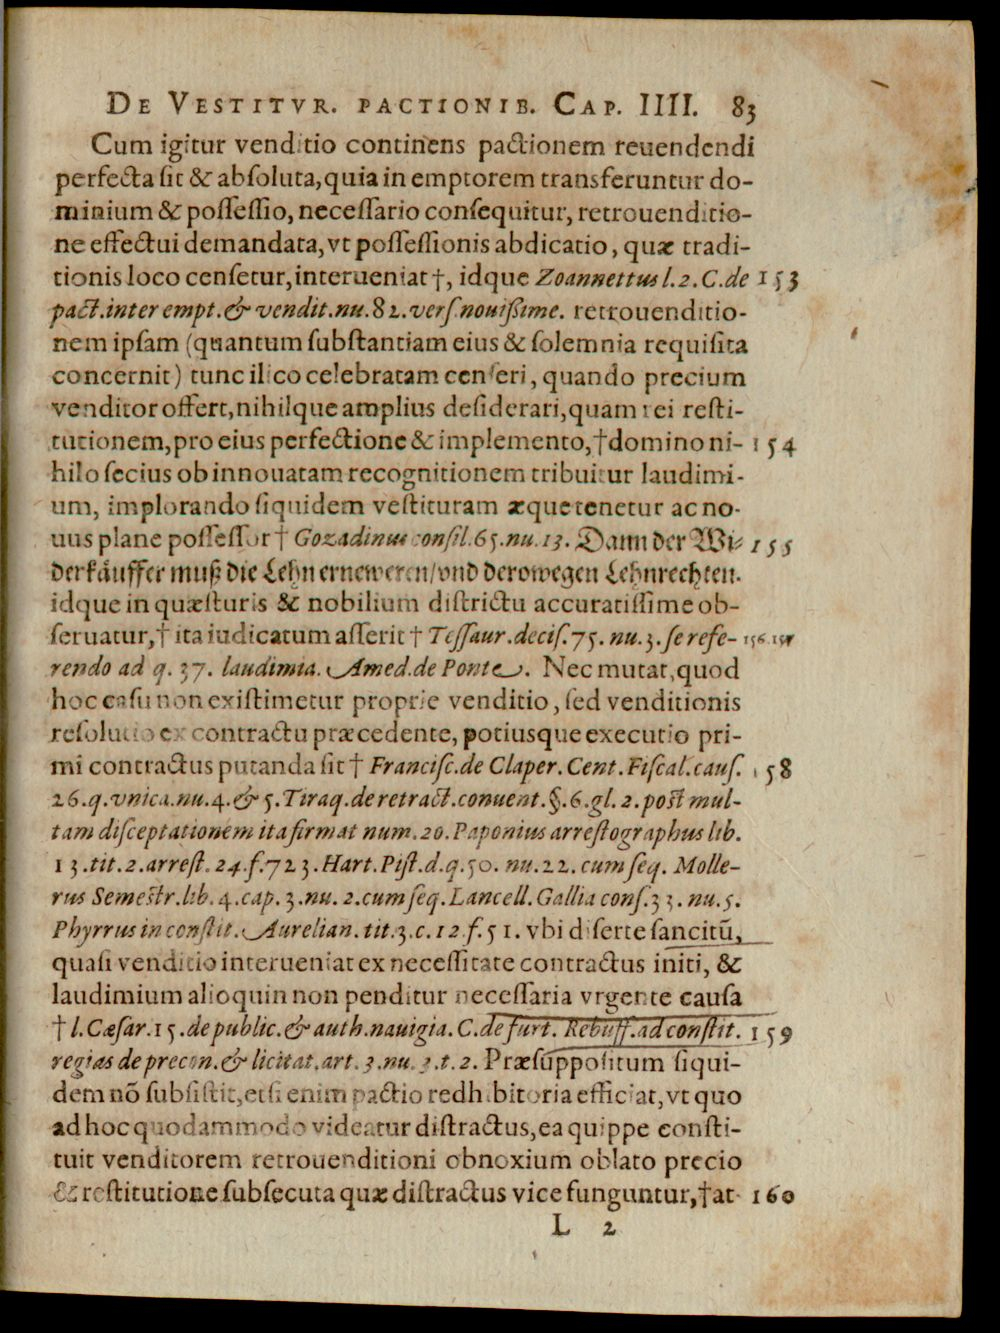 DE VESTITVR. PACTIONIB. CAP. IIII. 83
Cum igitur venditio continens pactionem reuendendi
perfecta sit & absoluta, quia in emptorem transferuntur do-
minium & possessio, necessario consequitur, retrouenditio-
ne effectui demandata, vt possessionis abdicatio, quæ tradi-
tionis loco censetur, interueniat †, idque Zoannettus l. 2. C. de 153
pact. inter empt. & vendit. nu. 82. vers. nouissime. retrouenditio-
nem ipsam (quantum substantiam eius & solemnia requisita
concernit) tunc ilico celebratam censeri, quando precium
venditor offert, nihilque amplius desiderari, quam rei resti-
tutionem, pro eius perfectione & implemento, † domino ni- 154
hilo secius ob innouatam recognitionem tribuitur laudimi-
um, implorando siquidem vestituram æque tenetur ac no-
uus plane possessor † Gozadinus consil. 65. nu. 13. Dann der Wi- 155
derkäuffer muß die Lehn erneweren/vnd derowegen Lehnrechten.
idque in quæsturis & nobilium districtu accuratissime ob-
seruatur, † ita iudicatum asserit † Tessaur. decis. 75. nu. 3. se refe- 156. 157
rendo ad q. 37. laudimia. Amed. de Ponte. Nec mutat, quod
hoc casu non existimetur proprie venditio, sed venditionis
resolutio ex contractu præcedente, potiusque executio pri-
mi contractus putanda sit † Francisc. de Claper. Cent. Fiscal. caus. 158
26. q. vnica. nu. 4. & 5. Tiraq. de retract. conuent. §. 6. gl. 2. post mul-
tam disceptationem ita firmat num. 20. Paponius arrestographus lib.
13. tit. 2. arrest. 24. f. 723. Hart. Pist. d. q. 50. nu. 22. cum seq. Molle-
rus Semestr. lib. 4. cap. 3. nu. 2. cum seq. Lancell. Gallia cons. 33. nu. 5.
Phyrrus in constit. Aurelian. tit. 3. c. 12. f. 51. vbi diserte sancitũ,
quasi venditio interueniat ex necessitate contractus initi, &
laudimium alioquin non penditur necessaria vrgente causa
† l. Cæsar. 15. de public. & auth. nauigia. C. de furt. Rebuff. ad constit. 159
regias de precon. & licitat. art. 3. nu. 3. t. 2. Præsuppositum siqui-
dem nõ subsistit, etsi enim pactio redhibitoria efficiat, vt quo
ad hoc quodammodo videatur distractus, ea quippe consti-
tuit venditorem retrouenditioni obnoxium oblato precio
& restitutione subsecuta quæ distractus vice funguntur, † at 160
L 2